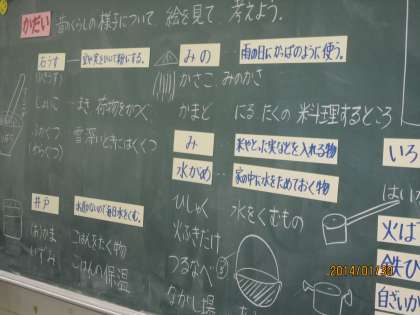 かだい 昔のくらしの様子について 絵を見て 考えよう。
石うす
しょいこ … まき、荷物をかつぐ
雪深いときにはくくつ
井戸
水道がないので毎日水をくむ。
(お)かま
ごはんをたく物
ごはんの保温
みの … 雨の日にかっぱのように使う。
かさこ みのかさ
かまど にる、たくの料理するところ
み … 米やとった実などを入れる物
水がめ … 家の中に水をためておく物
ひしゃく 水をくむもの
火ふきだけ
つるなべ
ながし場
いろ
火ば
鉄び
自ざいか
2014/01/30